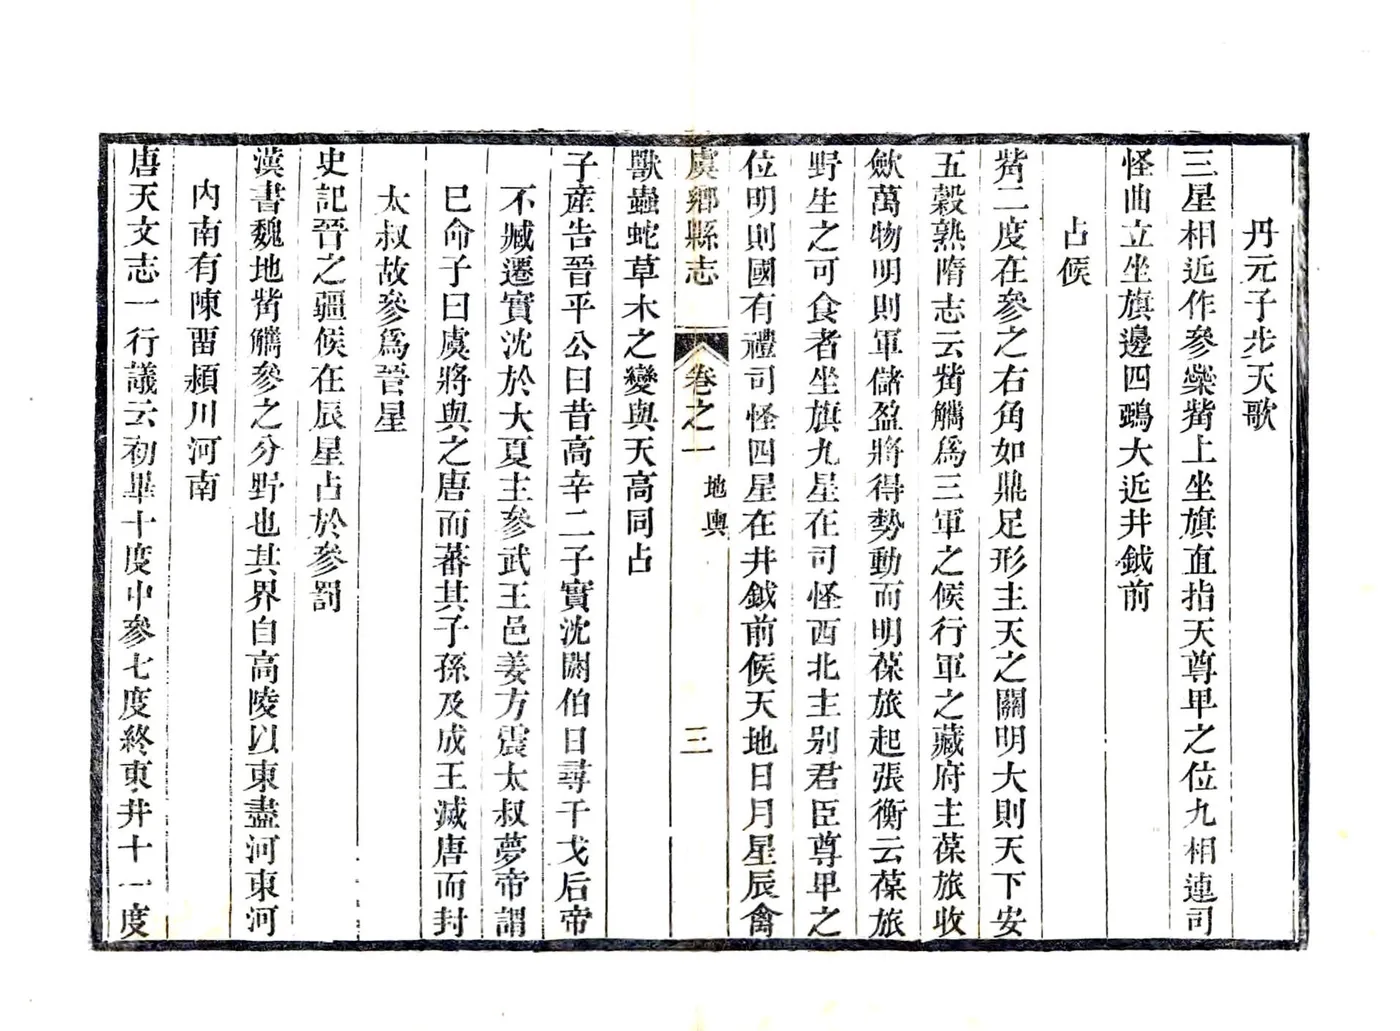 丹元子步天歌
三星相近作參蘂觜上坐旗直指天尊卑之位九相連司
怪曲立坐旗邊四鴉大近井鉞前
占候
觜二度在參之右角如鼎足形主天之關明大則天下安
五穀熟隋志云觜觿爲三軍之候行軍之藏府主葆旅收
斂萬物明則軍儲盈將得勢動而明葆旅起張衡云葆旅
野生之可食者坐旗九星在司怪西北主别君臣尊卑之
位明則國有禮司怪四星在井鉞前候天地日月星辰禽
虞鄉縣志 卷之一 地輿 三
獸蟲蛇草木之變與天高同占
子產告晉平公曰昔高辛二子實沈閼伯日尋干戈后帝
不臧遷實沈於大夏主參武王邑姜方震太叔夢帝謂
巳命子曰虞將與之唐而蕃其子孫及成王滅唐而封
太叔故參爲晉星
史記晉之疆候在辰星占於參罰
漢書魏地觜觿參之分野也其界自高陵以東盡河東河
內南有陳畱潁川河南
唐天文志一行議云初畢十度中參七度終東井十一度